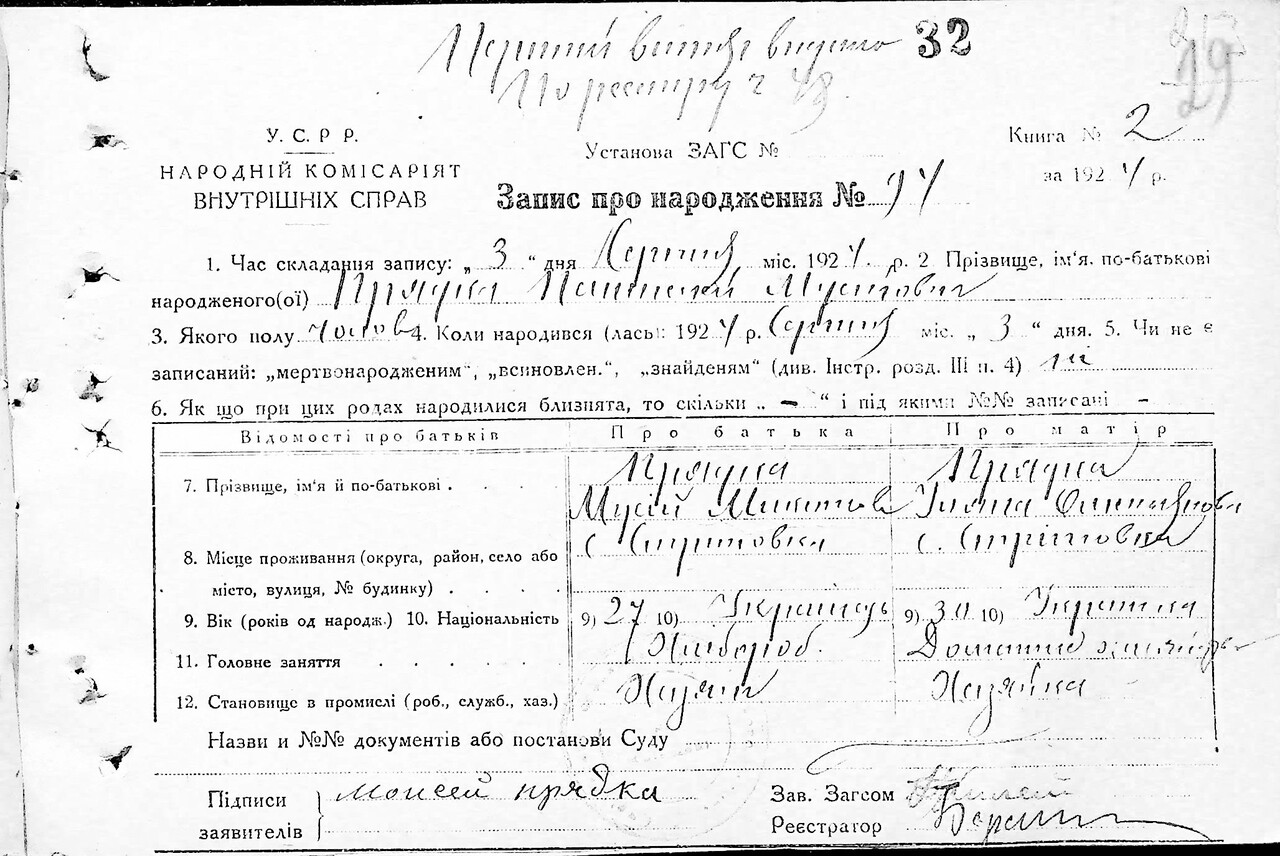 Перший витяг видано 32
По реестру ч 48.
29
У. С. Р. Р.
НАРОДНІЙ КОМІСАРІЯТ
ВНУТРІШНІХ СПРАВ
Установа ЗАГС №
Книга № 2
за 1924 р.
Запис про народження № 94
1. Час складання запису: „ 3 “ дня Серпня міс. 1924. р. 2 Прізвище, ім'я. по-батькові
народженого(ої) Прядка Мусійович
3. Якого полу чолов 4. Коли народився (лась): 1924 р. Серпня міс. „ 3 “ дня. 5. Чи не є
записаний: „мертвонародженим“, „всиновлен.“, „знайденям“ (див. Інстр. розд. III п. 4) ні
6. Як що при цих родах народилися близнята, то скільки „ – “ і під якими №№ записані –
Відомості про батьків Про батька Про матір
7. Прізвище, ім'я й по-батькові . . . . Прядка Прядка
Мусій Микитов Уляна
8. Місце проживання (округа, район, село або с Стритовка с. Стрітовка
місто, вулиця, № будинку) . . . .
9. Вік (років од народж.) 10. Національність 9) 27 10) Українець 9) 30 10) Українка
11. Головне заняття . . . . . Хлібороб. Домашнє
12. Становище в промислі (роб., служб., хаз.) Хазяїн Хазяйка
Назви и №№ документів або постанови Суду
Підписи моисей прядка Зав. Загсом
заявителів Реєстратор